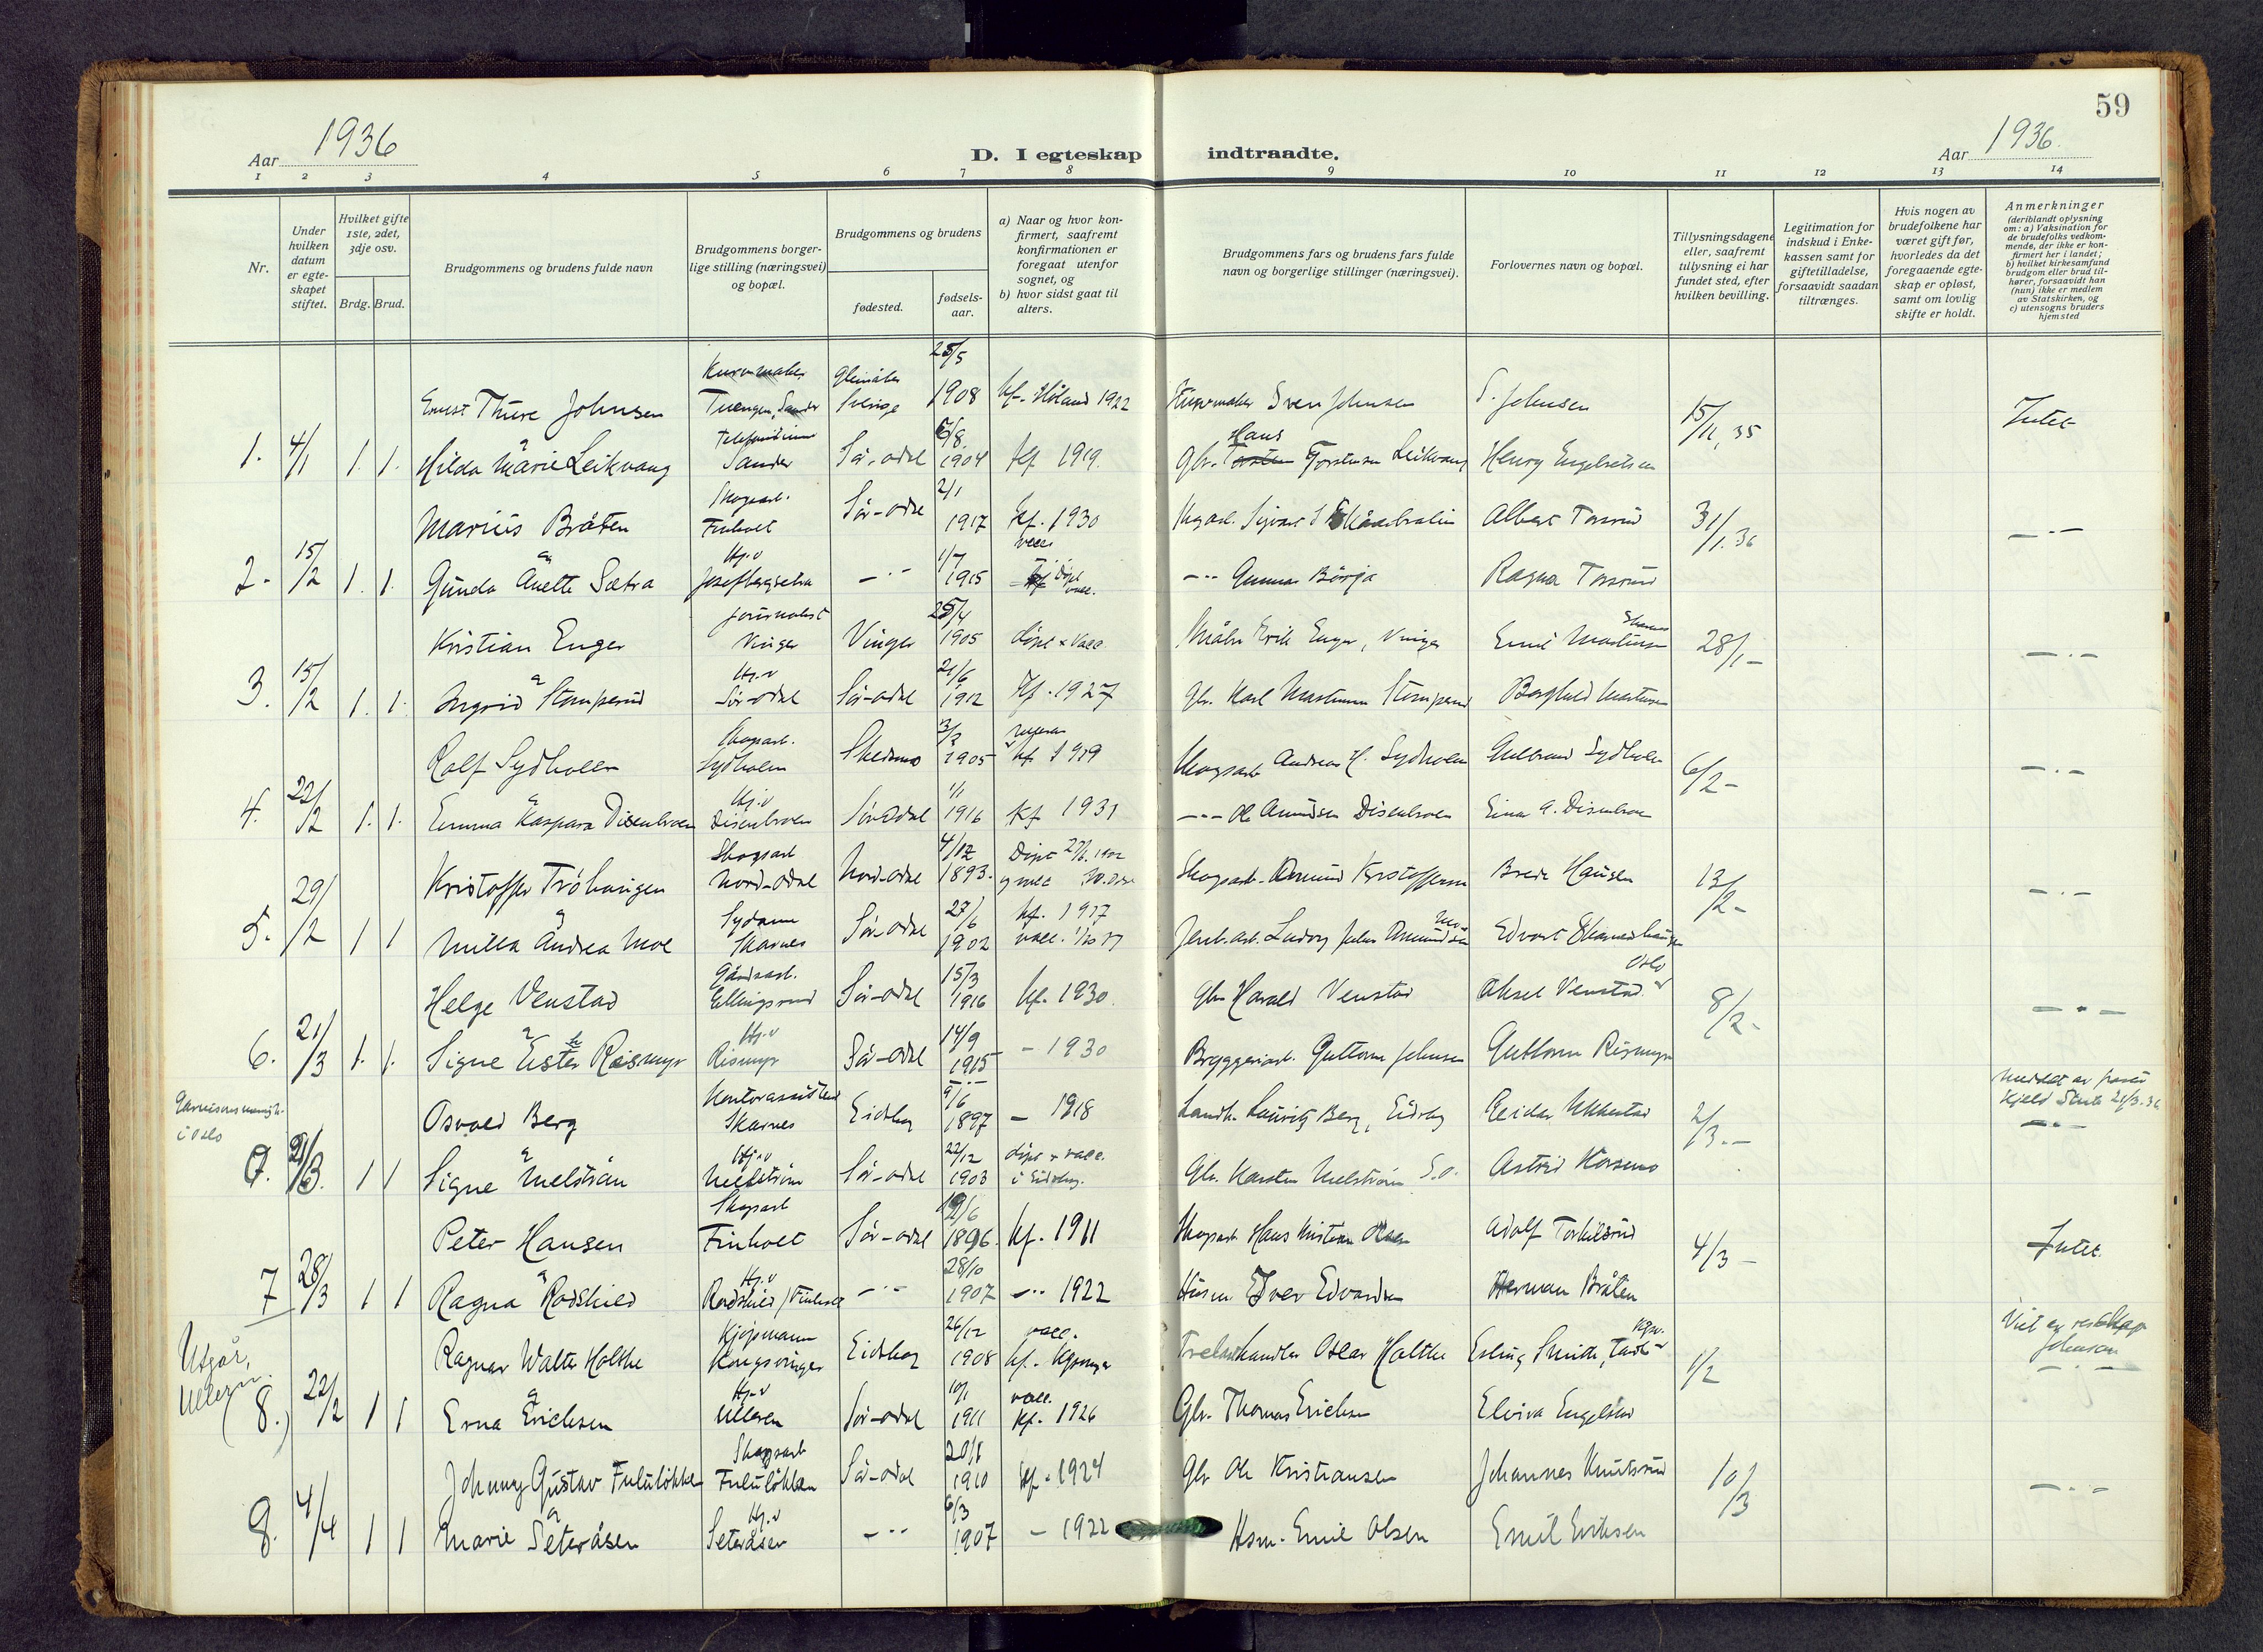 59
Aar 1936
D. I egteskap indtraadte.
Aar 1936.
1 2 3 4 5 6 7 8 9 10 11 12 13 14
Nr.
Under hvilken datum er egteskapet stiftet.
Hvilket gifte 1ste, 2det, 3dje osv.
Brdg. Brud.
Brudgommens og brudens fulde navn
Brudgommens borgerlige stilling (næringsvei) og bopæl.
Brudgommens og brudens
fødested.
fødsels-aar.
a) Naar og hvor konfirmert, saafremt konfirmationen er foregaat utenfor sognet, og
b) hvor sidst gaat til alters.
Brudgommens fars og brudens fars fulde navn og borgerlige stillinger (næringsvei).
Forlovernes navn og bopæl.
Tillysningsdagene eller, saafremt tillysning ei har fundet sted, efter hvilken bevilling.
Legitimation for indskud i Enkekassen samt for giftetilladelse, forsaavidt saadan tiltrænges.
Hvis nogen av brudefolkene har været gift før, hvorledes da det foregaaende egteskap er opløst, samt om lovlig skifte er holdt.
Anmerkninger (deriblandt oplysning om: a) Vaksination for de brudefolks vedkommende, der ikke er konfirmert her i landet; b) hvilket kirkesamfund brudgom eller brud tilhører, forsaavidt han (hun) ikke er medlem av Statskirken, og c) utensogns bruders hjemsted
Ernst Thure Johnsen Sverige 25/5 1908 kf. Høland 1922 Sven Johnsen S. Johnsen 15/11, 35 Intet
1. 4/1 1. 1. Hilda Marie Leikvang Sander Sør-Odal 1904 kf 1919. Gbr. Hans Torstensen Leikvang Henry Engebretsen
Marius Bråten Skogsarb. Finholt Sør-Odal 2/1 1917 kf. 1930 Albert Torsrud 31/1. 36
2. 15/2 1. 1. Gunda Anette Sætra Hj.v 1/7 1915 Gunnar Børja Ragna Torsrud
Kristian Enger Journalist Vinger Vinger 25/4 1905 døpt & vacc. Erik Enger, Vinger Emil Martinsen 28/1
3. 15/2 1. 1. Ingrid Stomperud Hj.v Sør-Odal Sør-Odal 21/6 1912 kf. 1927 Gbr. Karl Martinsen Stomperud Borghild Martinsen
Rolf Sydholen Skogsarb. Sydholen Skedsmo 1905 kf 1919 Skogsarb Andreas H. Sydholen Gulbrand Sydholen 6/2
4. 22/2 1. 1. Emma Kaspara Disenbroen Hj.v Disenbroen Sør-Odal 1/1 1916 kf 1931 Ole Amundsen Disenbroen Einar A. Disenbroen
Kristoffer Tröhaugen Skogsarb Nord-Odal Nord-Odal 4/12 1893. Skogsarb. Amund Kristoffersen Brede Hansen 13/2
5. 29/2 1 1 Milla Andrea Moe Sydame Skarnes Sør-Odal 27/6 1902 kf. 1917 Jernb.arb. Ludvig Julius Amundsen Moe Edvart Skarneshaugen
Helge Venstad Gårdsarb. Ellingsrud Sør-Odal 15/3 1916 kf. 1930. Gbr Harald Venstad Aksel Venstad Oslo 8/2
6. 21/3 1. 1. Signe Ester Rismyr Hj.v Rismyr Sør-Odal 14/9 1915 - 1930 Bryggeriarb. Guttorm Johnsen Guttorm Rismyr
i Oslo
Osvald Berg Kontorassistent Skarnes Eidskog 9/6 1897 - 1918 Landh. Lauritz Berg, Eidskog Reidar Ukkestad 2/3
21/3. 1 1 Signe Melström Hj.v Melström Sør-Odal 22/12 1903 døpt & vacc. i Eidskog. Gbr. Karsten Melström S.O. Astrid Korsmo
Peter Hansen Skogsarb Finholt Sør-Odal 1896. kf. 1911 Skogsarb Hans Kristian Olsen Adolf Torkilsrud 4/3 Intet.
7 28/3 1 1 Ragna Rodskied Hj.v 28/10 1907 1922 Iver Edvardsen Herman Bråten
Utgår, Ullern.
Ragnar Walter Holthe Kjøpmann Kongsvinger Eidskog 26/12 1908 vacc. kf. Kgsvinger Trelasthandler Oskar Holthe Erling Smith 1/2
(8.) 22/2 1 1 Erna Erichsen Hj.v Ulleren Sør-Odal 10/1 1911 vacc. kf. 1926 Gbr. Thomas Erichsen Elvira Engelstad
Johnny Gustav Fululökken Skogsarb Fululökken Sør-Odal 20/8 1910 kf. 1924 Gbr Ole Kristiansen Johannes Knutsrud 10/3
8. 4/4 1 1 Marie Seteråsen Hj.v Seteråsen 6/3 1907 - 1922 Hsm. Emil Olsen Emil Eriksen